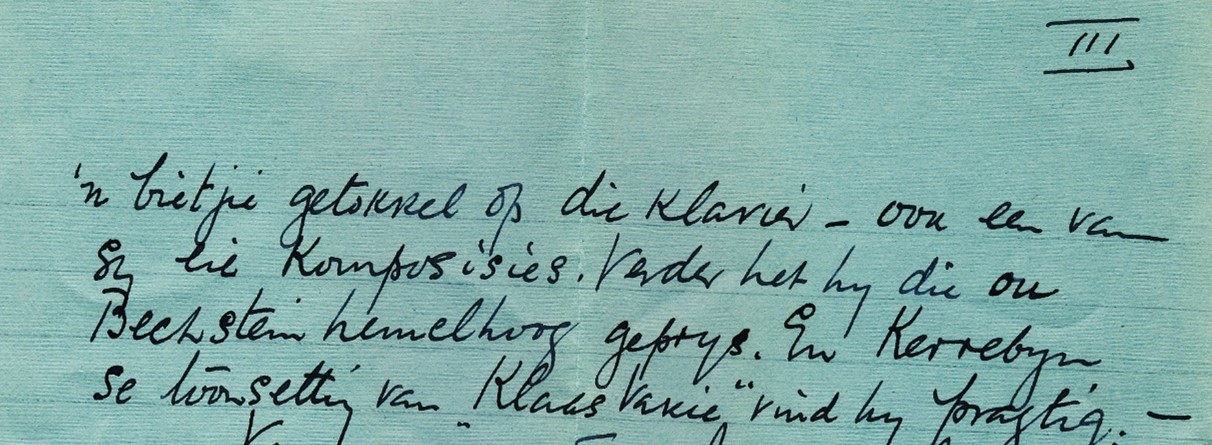 III
'n bietjie getokkel op die klavier – ook een van
Sy eie Komposisies. Verder het hy die ou
Bechstein hemelhoog geprys. En Kerrebyn
se toonsetting van "Klaas Vakie" vind hy pragtig. –